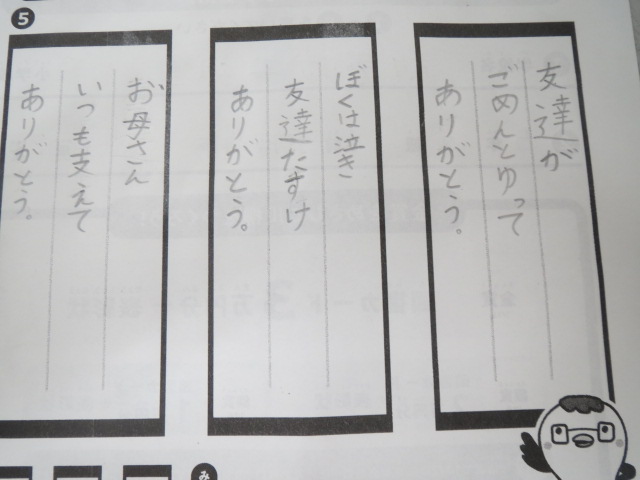 5
友達が
ごめんとゆって
ありがとう。
ぼくは泣き
友達たすけ
ありがとう。
お母さん
いつも支えて
ありがとう。
み